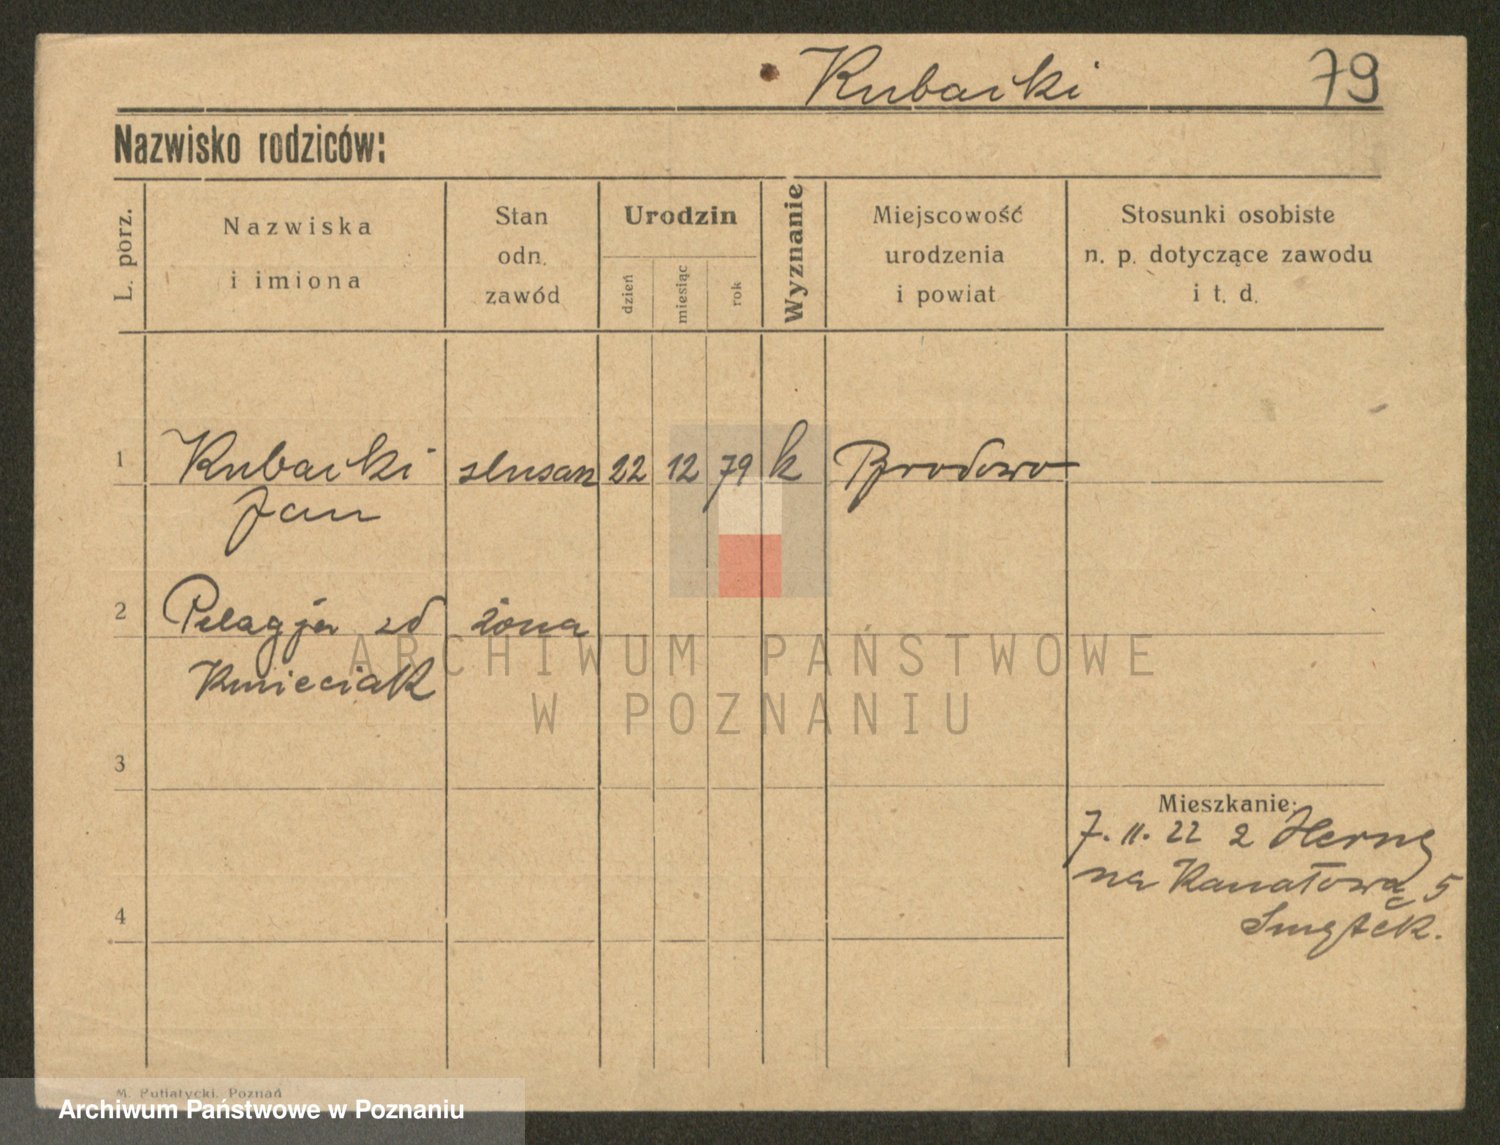 Kubacki 79
Nazwisko rodziców:
L. porz.
Nazwiska
i imiona
Stan
odn.
zawód
Urodzin
dzień
miesiąc
rok
Wyznanie
Miejscowość
urodzenia
i powiat
Stosunki osobiste
n. p. dotyczące zawodu
i t. d.
1 Kubacki ślusarz 22 12 79 k Brodowo
Jan
2 Pelagja zd żona
Kmieciak
ARCHIWUM PAŃSTWOWE
W POZNANIU
3
Mieszkanie:
7. 11. 22 z Herne
na Kanałową 5
4
M. Putiatycki, Poznań
Archiwum Państwowe w Poznaniu